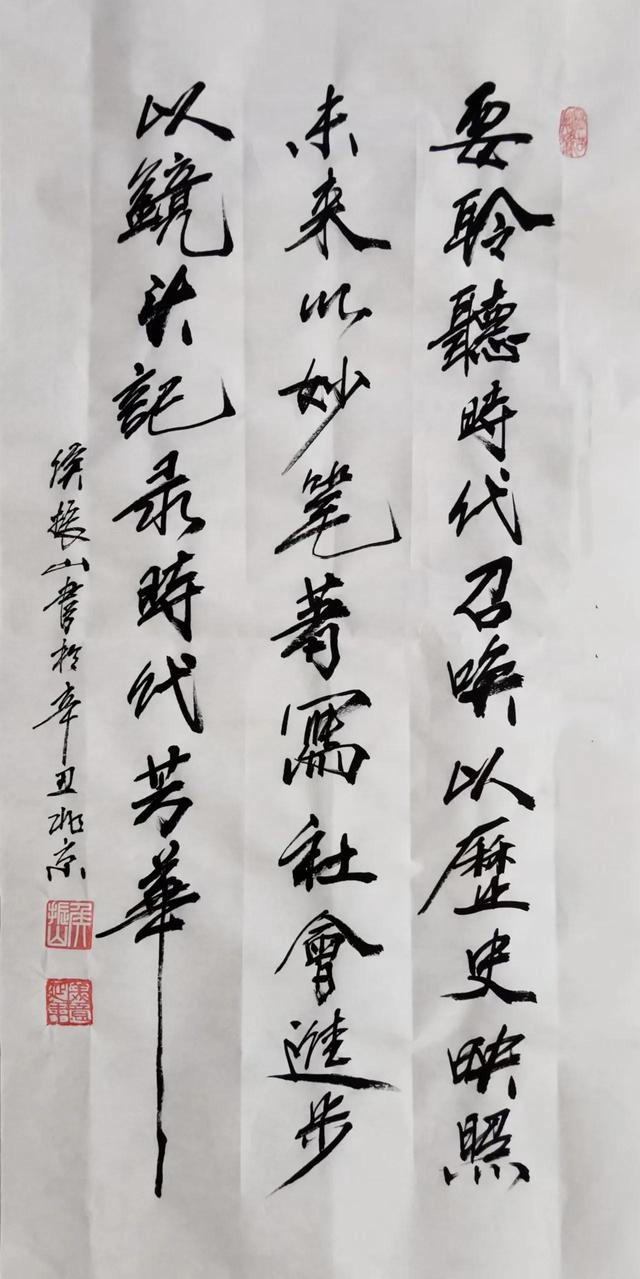 要聆聽時代召唤以歷史映照
未来以妙笔著寫社會進步
以鏡头記录時代芳華
侯振山書於辛丑北京
侯振山